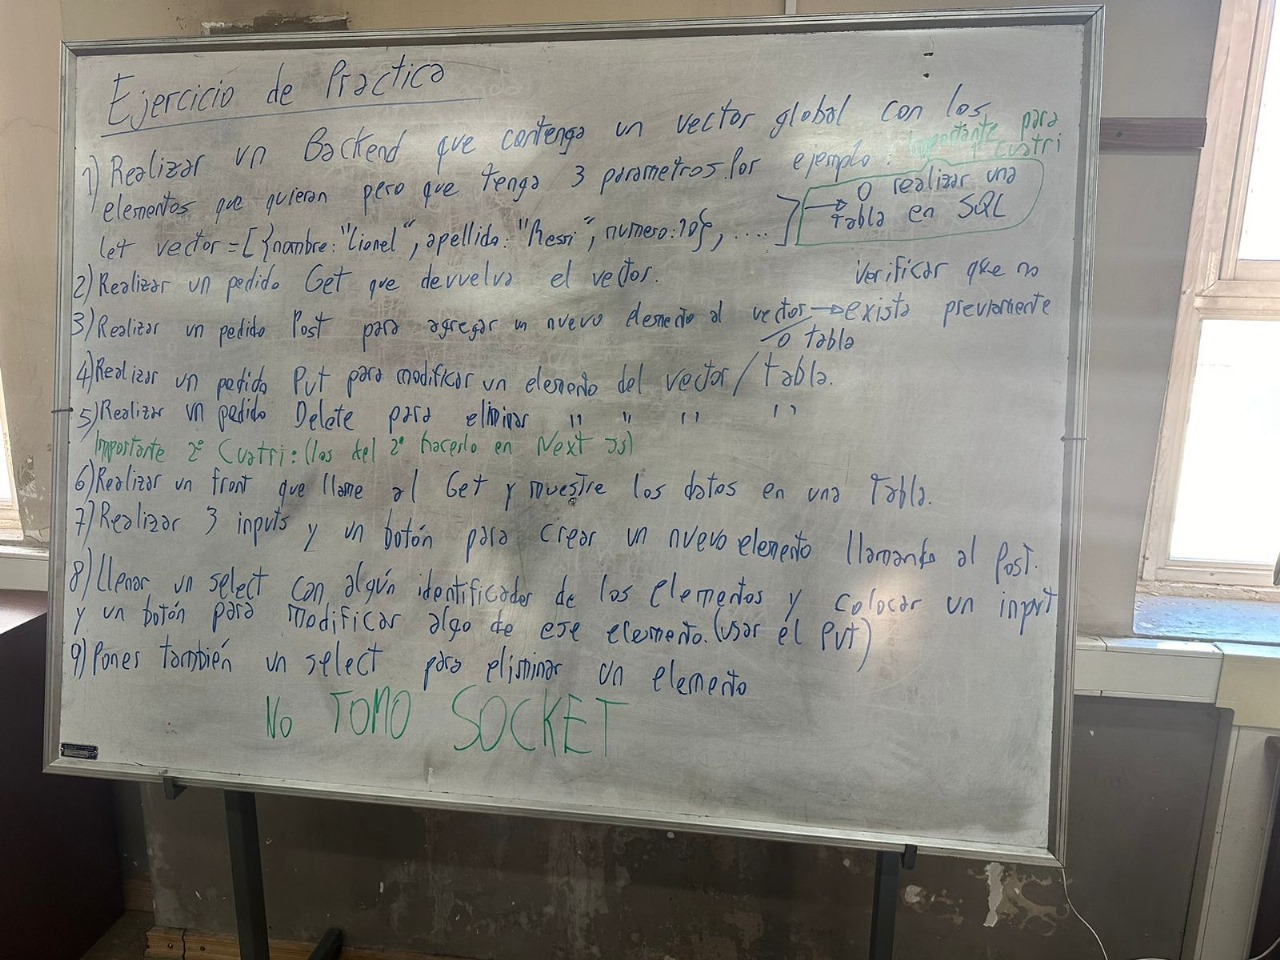 Ejercicio de Practica
1) Realizar un Backend que contenga un vector global con los
elementos que quieran pero que tenga 3 parametros. Por ejemplo:
Importante para
1º Cuatri
let vector = [{nombre: "Lionel", apellido: "Messi", numero: 10}, ....]
→ O realizar una
tabla en SQL
2) Realizar un pedido Get que devuelva el vector.
Verificar que no
3) Realizar un pedido Post para agregar un nuevo elemento al vector → exista previamente
/o tabla
4) Realizar un pedido Put para modificar un elemento del vector / tabla.
5) Realizar un pedido Delete para eliminar " " " "
Importante 2º Cuatri: (los del 2º hacerlo en Next JS)
6) Realizar un front que llame al Get y muestre los datos en una tabla.
7) Realizar 3 inputs y un botón para crear un nuevo elemento llamando al Post.
8) Llenar un select con algún identificador de los elementos y colocar un input
y un botón para modificar algo de ese elemento. (usar el Put)
9) Pones también un select para eliminar un elemento
No TOMO SOCKET